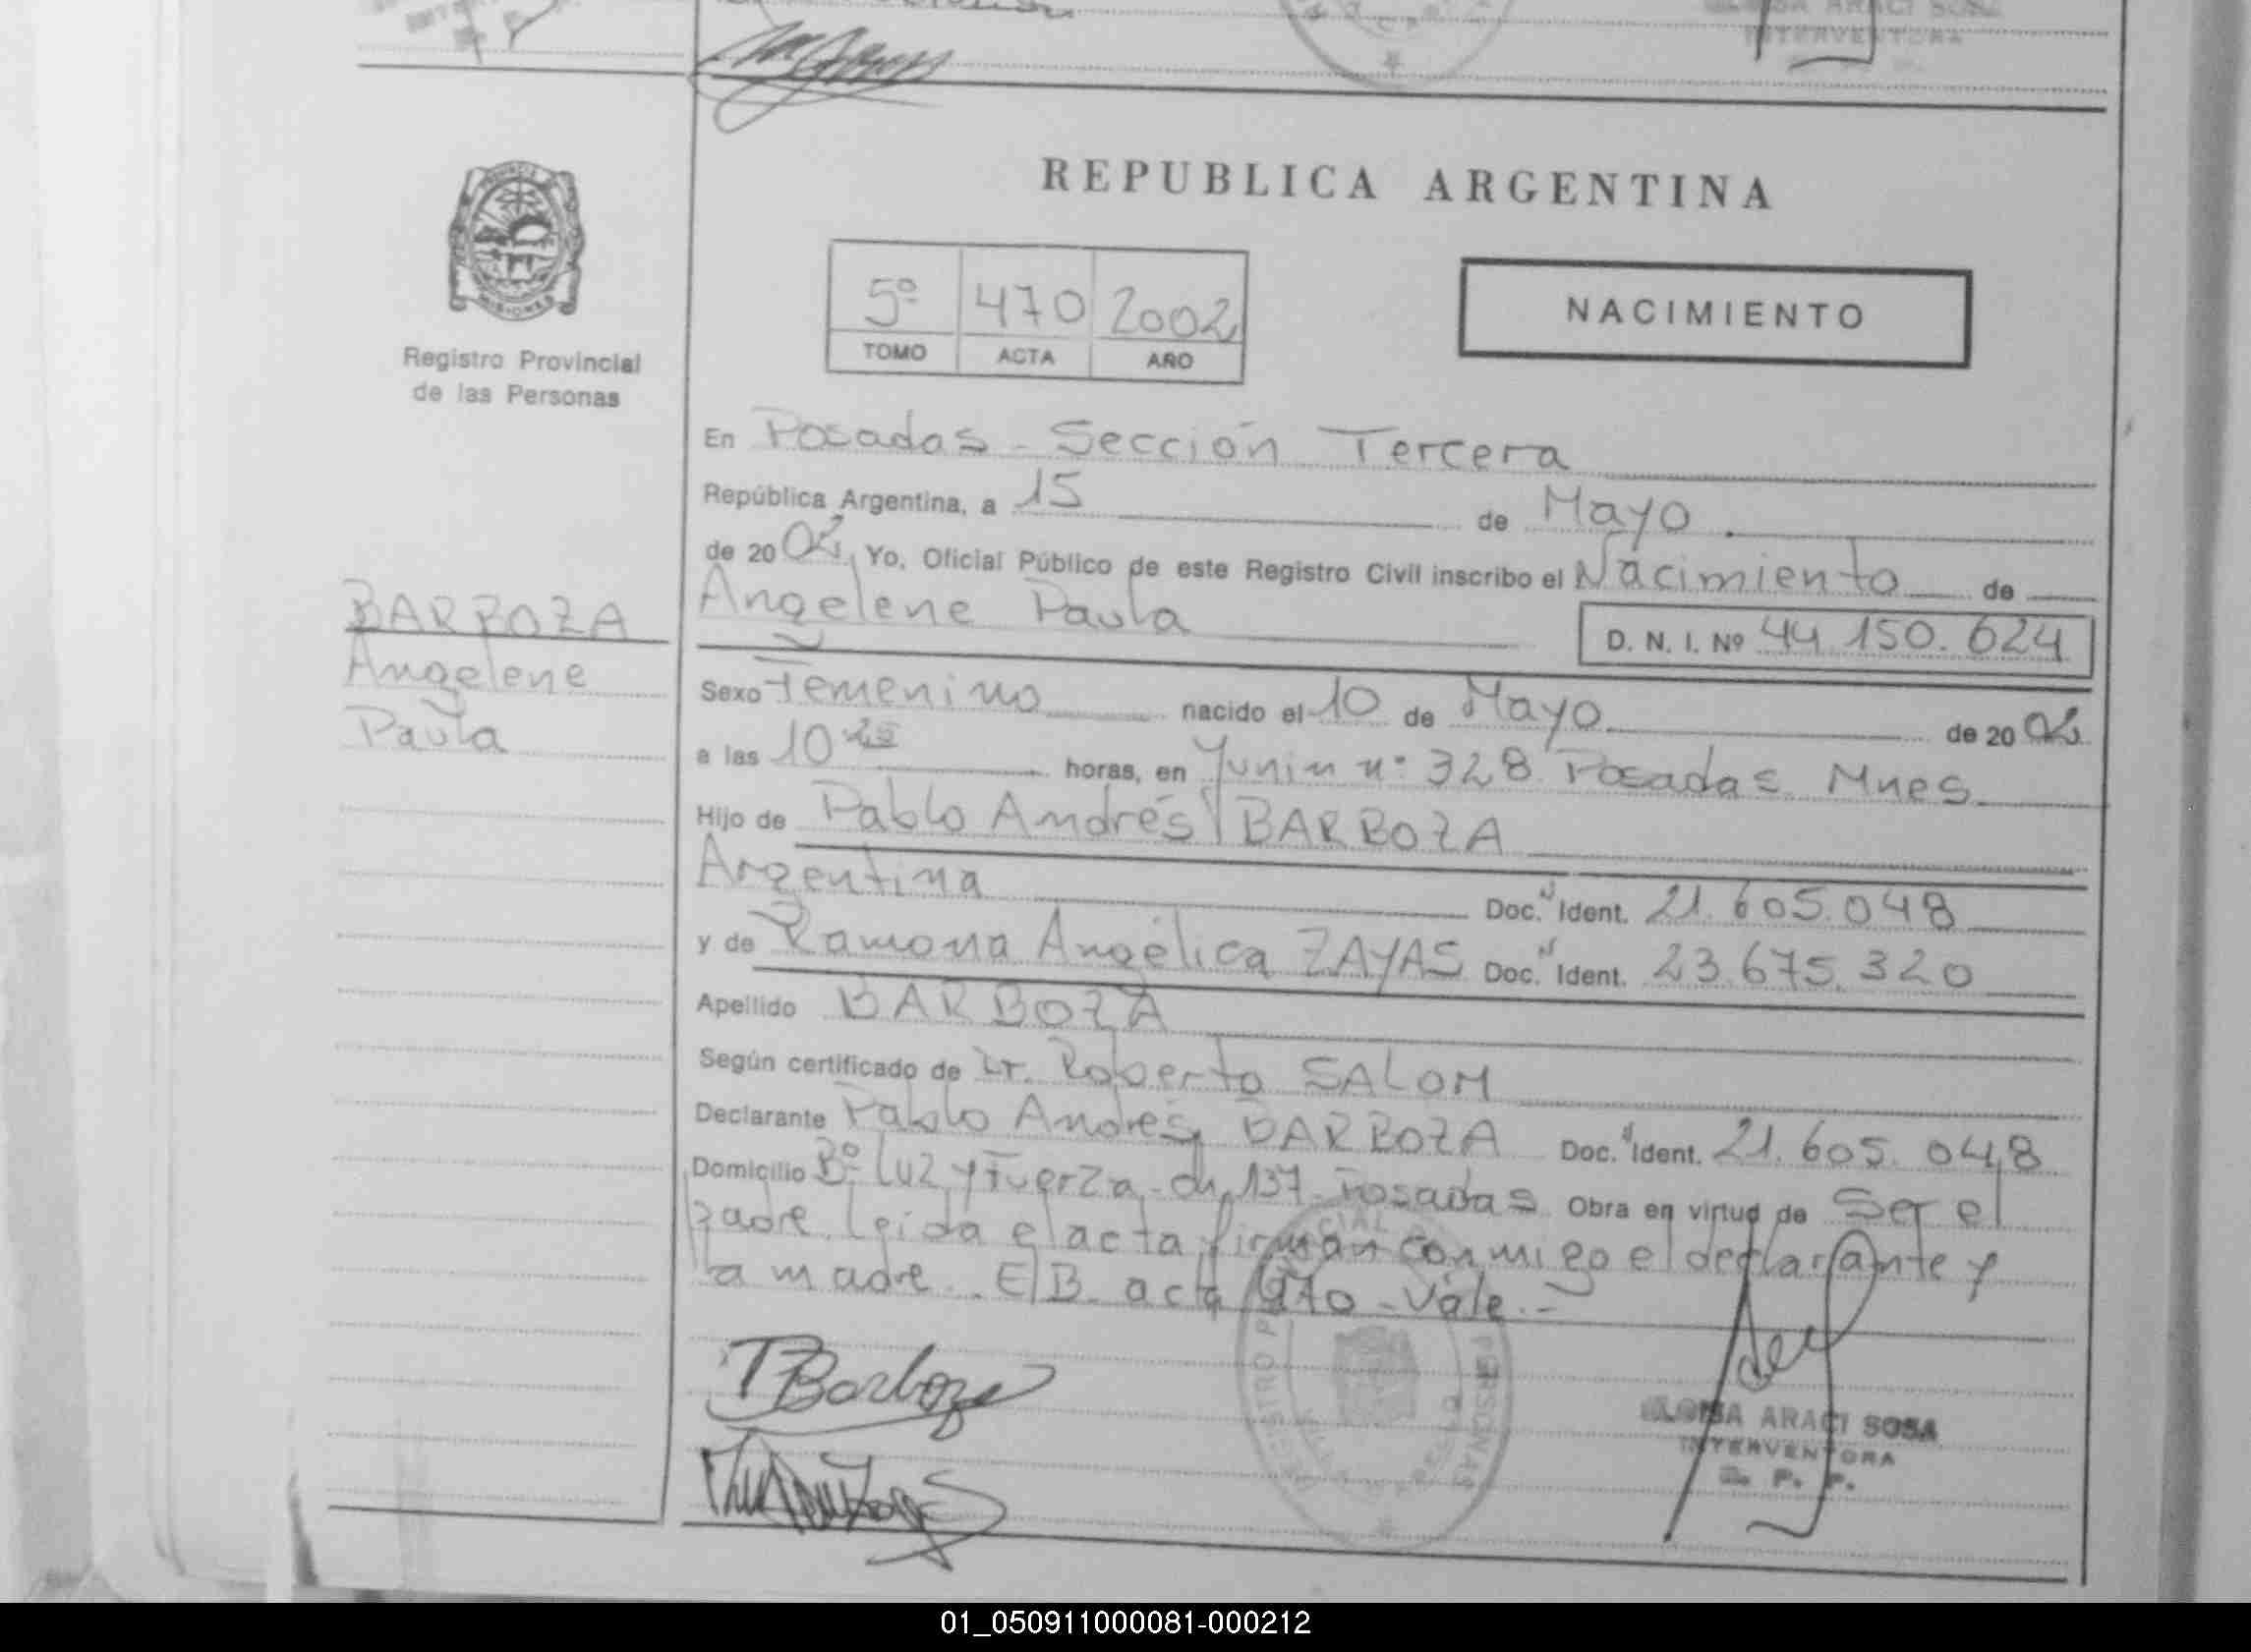 ARACI SOSA
INTERVENTORA
REPUBLICA ARGENTINA
Registro Provincial
de las Personas
5º 470 2002
TOMO ACTA AÑO
NACIMIENTO
En Posadas - Sección Tercera
República Argentina, a 15 de Mayo
de 20 02, Yo, Oficial Público de este Registro Civil inscribo el Nacimiento de
Angelene Paula
D. N. I. Nº 44.150.624
BARBOZA
Angelene
Paula
Sexo Femenino nacido el 10 de Mayo de 20 02
a las 10 horas, en Junin nº 328 Posadas Mnes
Hijo de Pablo Andrés BARBOZA
Argentina Doc. Ident. 21.605.048
y de Ramona Angélica ZAYAS Doc. Ident. 23.675.320
Apellido BARBOZA
Según certificado de Dr. Roberto SALOM
Declarante Pablo Andrés BARBOZA Doc. Ident. 21.605.048
Domicilio Bº Luz y Fuerza - ch 137 - Posadas Obra en virtud de Ser el
padre. Leida el acta firman conmigo el declarante y
la madre. E/B. acta 470 - Vale.-
Barboza
ARACI SOSA
INTERVENTORA
R. P. P.
01_050911000081-000212